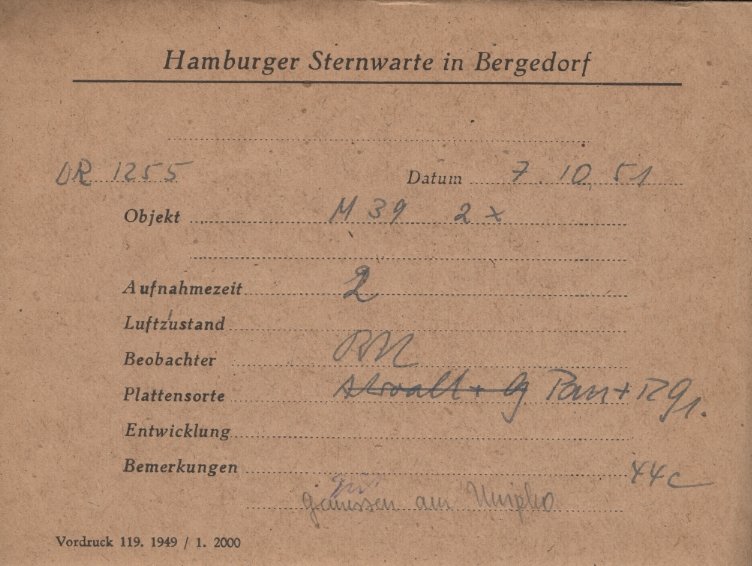 Hamburger Sternwarte in Bergedorf
OR 1255 Datum 7. 10. 51
Objekt M 39 2 x
Aufnahmezeit 2
Luftzustand
Beobachter
Plattensorte Pan + RG1.
Entwicklung
Bemerkungen 44c
gemessen am
Vordruck 119. 1949 / 1. 2000